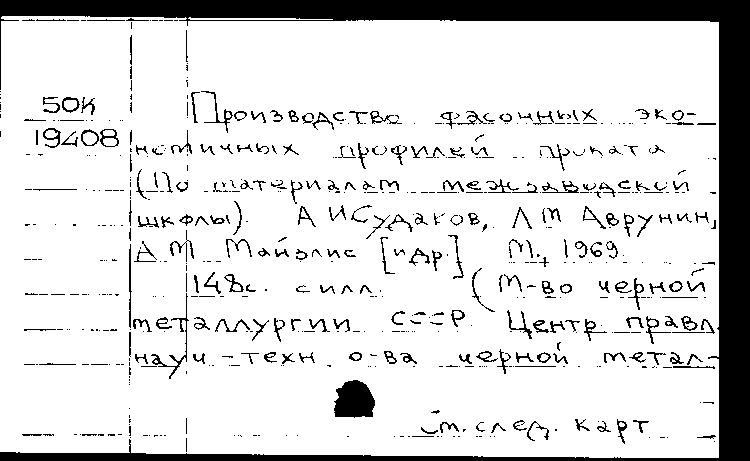 50К
19408
Производство фасонных эко-
номичных профилей проката
(По материалам межзаводской
школы). А И Судаков, Л М Аврунин,
А М Майзлис [и др.] М., 1969
148с. с илл. (М-во черной
металлургии СССР Центр правл.
науч-техн о-ва черной метал-
См. след. карт